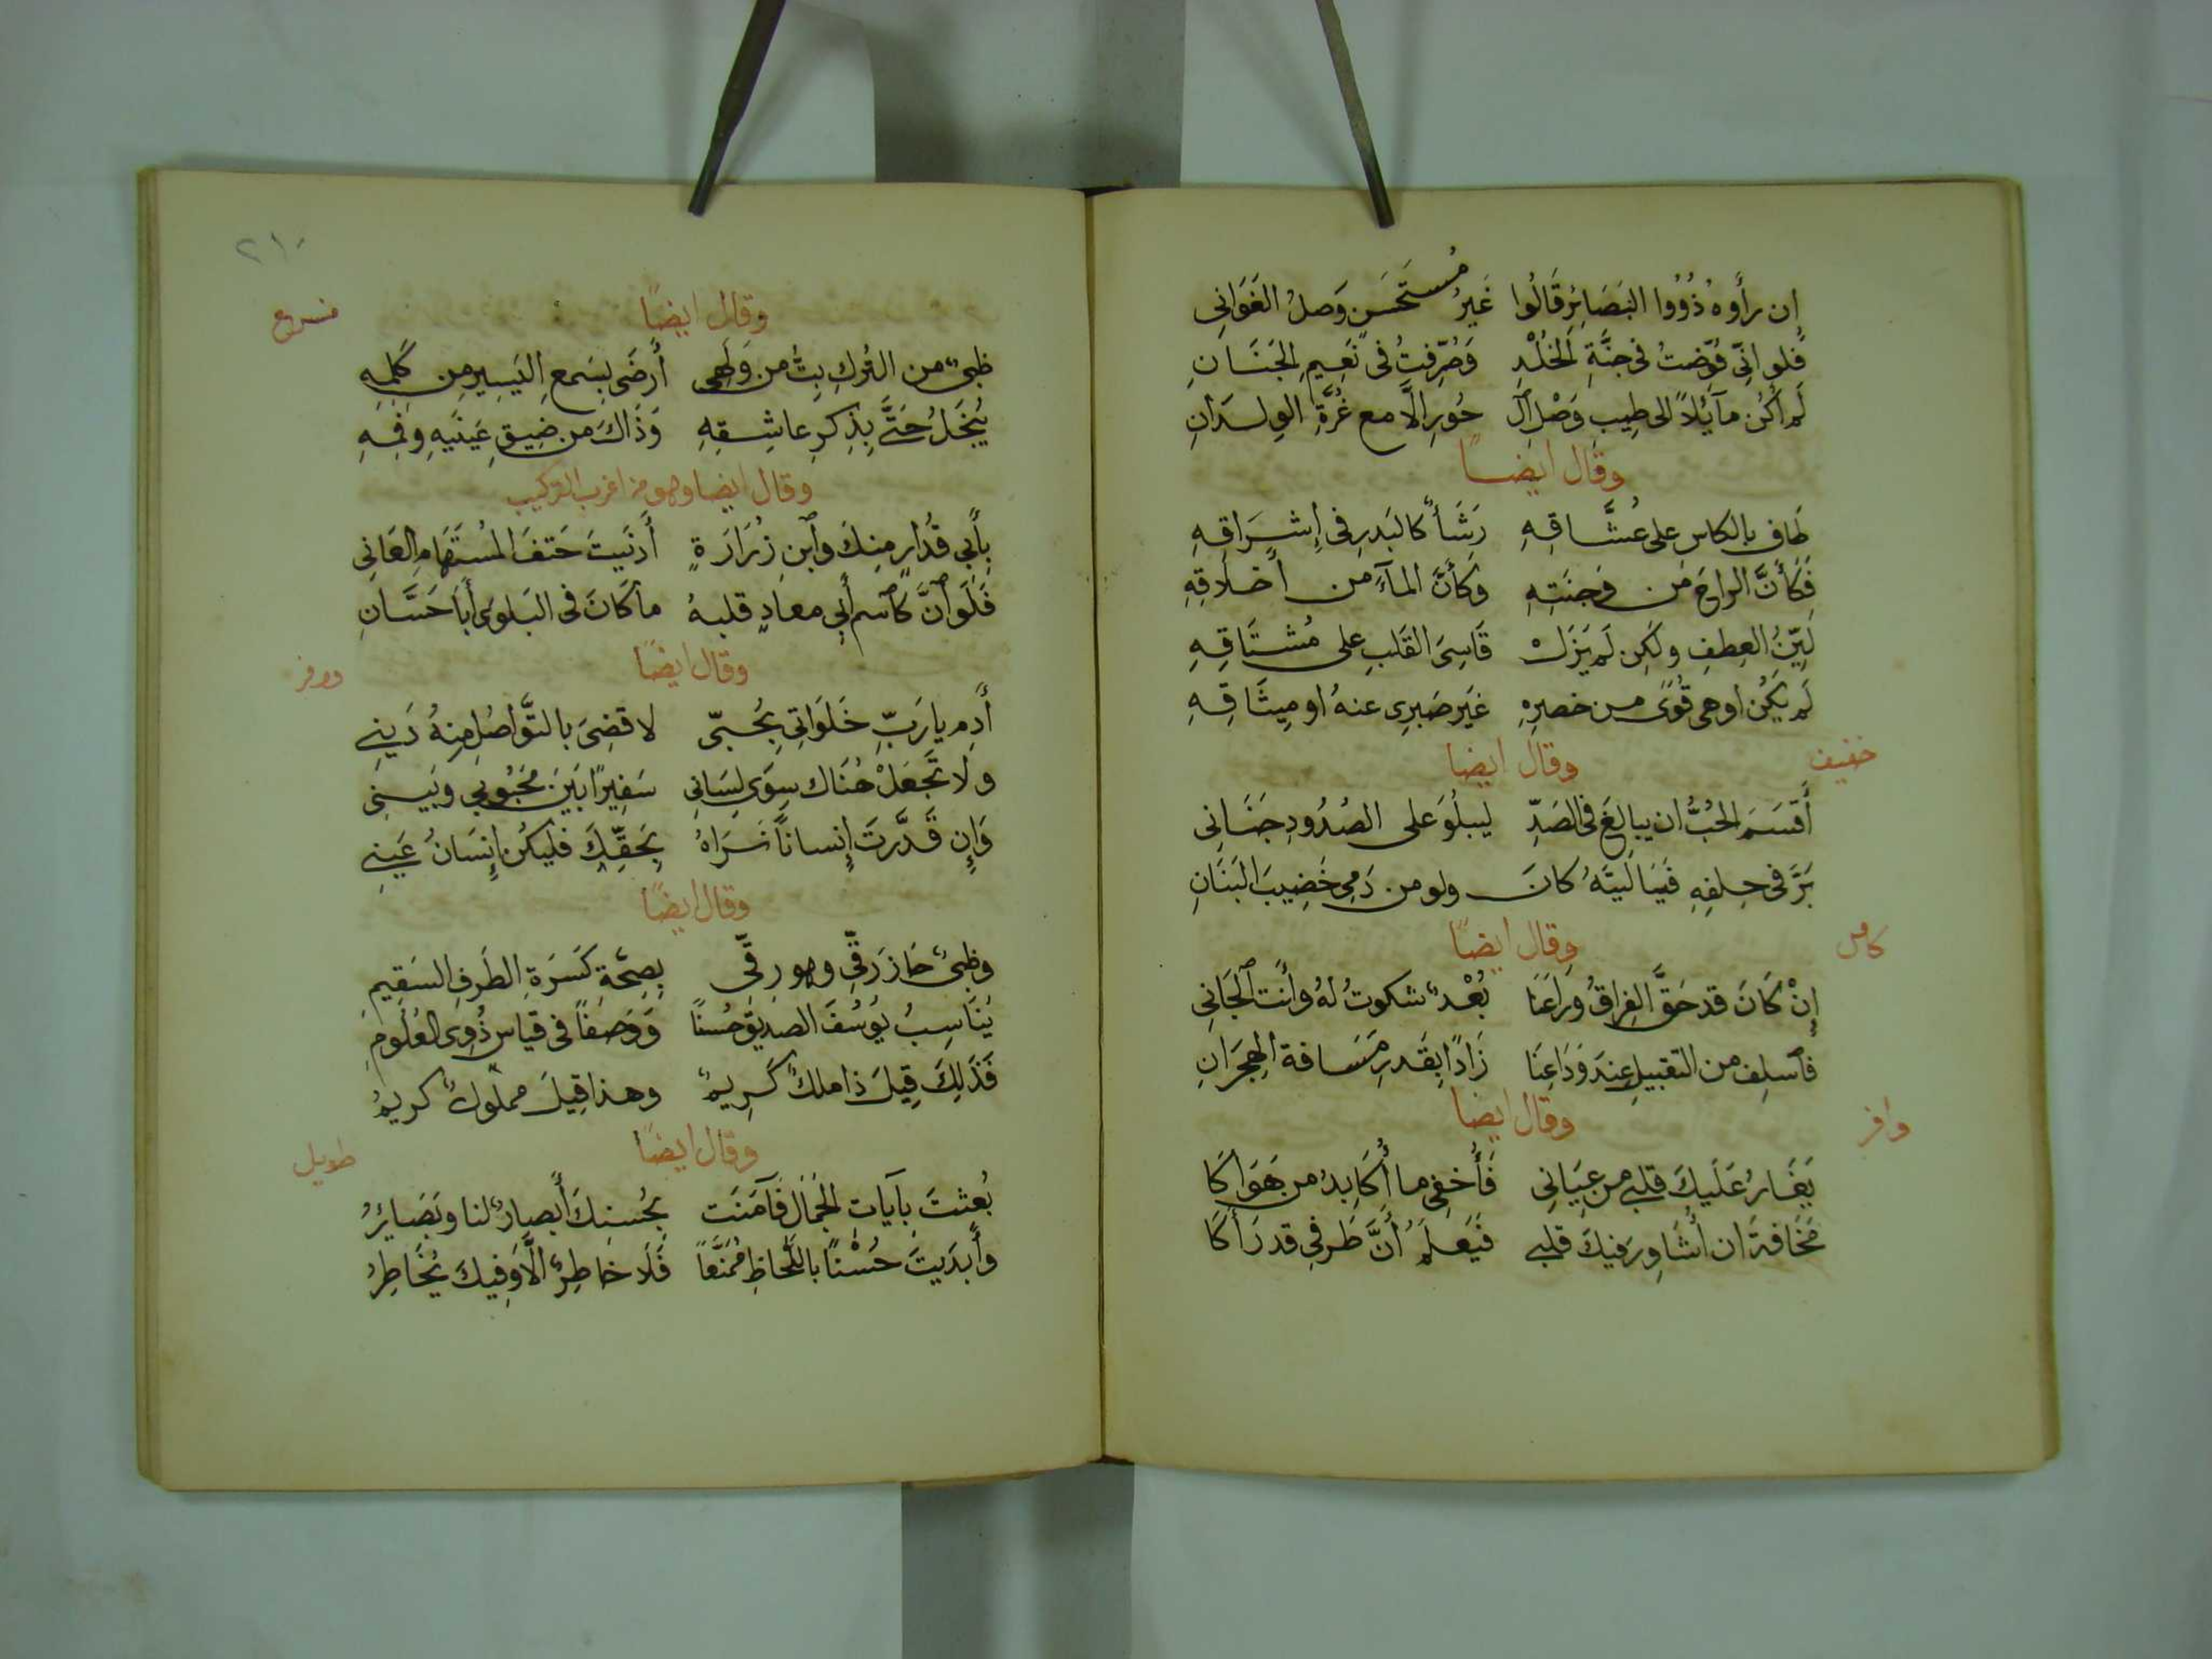 إن رأوه ذُوُوا البَصَائِرِ قَالُوا غَيرُ مُستَحسَنٍ وَصلُ الغَوَانِى
فلو انِّى فُوِّضتُ فى جنَّةِ الخُلْدِ وَصُرِّفتُ فى نَعِيمِ الجَنَانِ
لَم اكُن مآئِلاً الى طِيب وَصْلِ ٱل حُورِ الَّا مع غُرَّةِ الوِلدَانِ
وقال ايضًا
طَاف بالكاس على عُشَّاقهِ رَشَأٌ كالبَدرِ فى إِشرَاقِهِ
فَكَأَنَّ الراحَ من وَجنَتِهِ وكَأَنَّ المآءَ من أخلَاقِهِ
لَيِّنُ العِطفِ ولَكِن لَم يَزَلْ قَاسِىَ القَلبِ على مُشتَاقِهِ
لَم يَكُن اوهى قُوًى من خصرِهِ غَيرَ صَبرِى عنهُ او مِيثَاقِهِ
خفيف
وقال ايضا
أَقسَمَ الحُبُّ ان يبالِغَ فى الصَدِّ ليبلُوَ على الصُدُودِ جَنَانِى
بَرَّ فى حِلفِهِ فَيَا لَيتَهُ كانَ ولو من دَمِى خَضِيبَ البَنَانِ
كامل
وقال ايضًا
إِنْ كَانَ قد حَقَّ الفِراقُ ورَاعَنَا بُعْدٌ شكوتُ لهُ وأَنتَ ٱلجَانِى
فٱسلِف من التقبيلِ عِندَ وَدَاعِنَا زَادًا بِقَدرِ مَسَافةِ الهِجرَانِ
وافر
وقال ايضا
يَغَارُ عَلَيكَ قلبِى من عِيَانِى فَأُخفِى ما أُكَابِدُ من هَوَاكَا
مَخَافةَ ان أُشَاوِرَ فيكَ قلبى فَيَعلَمُ أَنَّ طَرفِى قد رَأَكَا
٢١٠
منسرح
وقال ايضًا
ظبىٌ من التُركِ بِتُّ من وَلَهِى أَرضَى بِسَمعِ اليَسِيرِ مِن كَلِمِهِ
يُبخَلُ حَتَّى بِذِكرِ عاشِقِهِ وَذَاكَ من ضِيقِ عَينَيهِ وفَمِهِ
وقال ايضا وهو من اغرب التركيب
بِأَبِى قُدَارٍ مِنكَ وٱبنِ زُرَارَةٍ أَدنَيتَ حَتفَ المُستَهَامِ العَانِى
فَلَو ٱنَّ كٱسم أَبِى معادٍ قلبهُ ما كَانَ فى البَلوَى أَبَا حَسَّانِ
وافر
وقال ايضًا
أَدِم يا رَبِّ خَلَوَاتِى بِحُبّى لاقضِىَ بالتَّوَاصُلِ مِنهُ دَينِى
ولَا تَجعَلْ هُنَاك سِوَى لِسَانِى سَفِيرًا بَينَ مَحبُوبِى وبَينِى
وَإِن قَدَّرتَ إِنساناً نَرَاهُ بِحَقِّكَ فَليكُن إِنسَانُ عَينِى
وقال ايضًا
وظبىٌ حَازَ رَقِّى وهو رِقّى بِصِحَّةِ كَسَرةِ الطَرفِ السَقِيمِ
يُنَاسِبُ يُوسُفَ الصديق حُسناً وَوَصفاً فى قياس ذُوِى العُلُومِ
فَذَلِكَ قِيلَ ذا ملكٌ كَرِيمٌ وهذا قِيلَ مملُوكٌ كريمُ
طويل
وقال ايضًا
بُعثتَ بِآيَاتِ الجَمَالِ فَآمَنَت بِحُسنِكَ أَبصارٌ لنا وبَصَائِرُ
وأَبدَيتَ حُسْنًا باللِّحَاظِ مُمَنَّعاً فَلَا خاطِرٌ الَّا وَفِيكَ يُخَاطِرُ